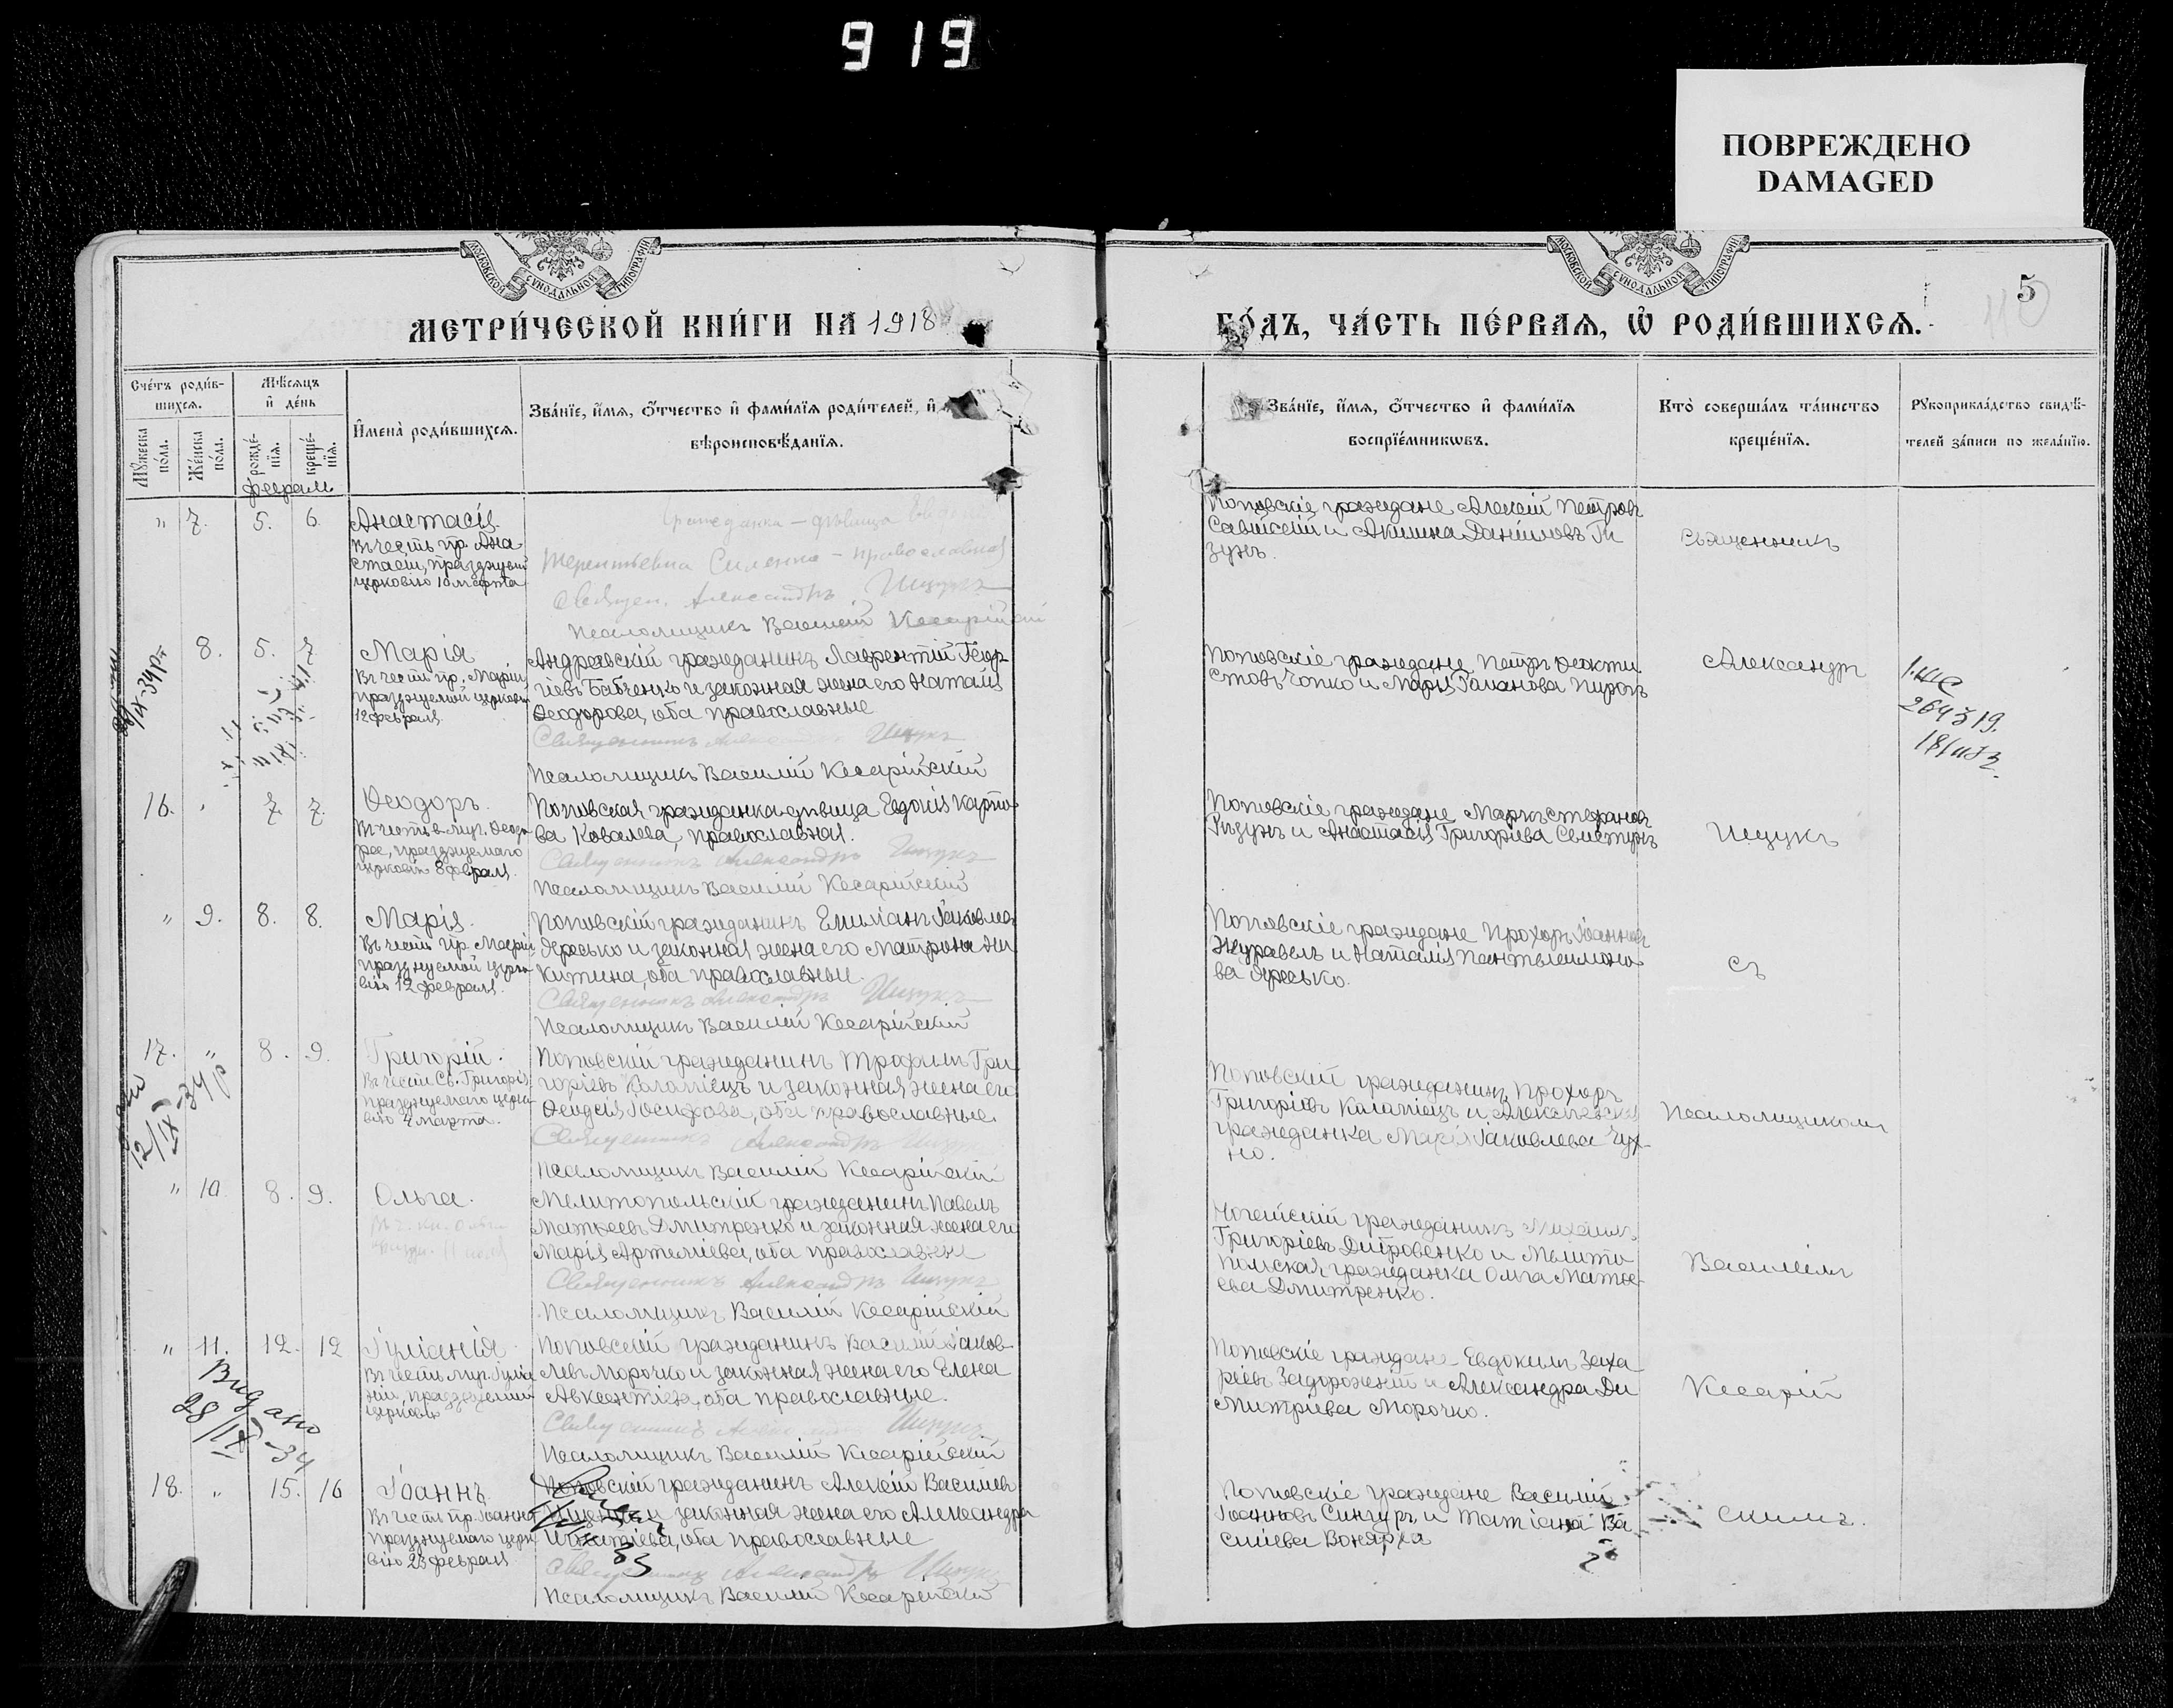 919
ПОВРЕЖДЕНО
DAMAGED
МОСКОВСКОЙ СѴНОДАЛЬНОЙ ТИПОГРАФІИ
МОСКОВСКОЙ СѴНОДАЛЬНОЙ ТИПОГРАФІИ
5
МЕТРИ́ЧЕСКОЙ КНИ́ГИ НА 1918
ГО́ДЪ, ЧА́СТЬ ПЕ́РВАѦ, Ѡ҆ РОДИ́ВШИХСѦ.
Сче́тъ роди́в-
шихсѧ.
Мꙋ́жеска
по́ла.
Же́нска
по́ла.
Мѣ́сѧцъ
и҆ де́нь
рожде́-
нїѧ.
креще́-
нїѧ.
И҆мена̀ роди́вшихсѧ.
Зва́нїе, и҆́мѧ, ѻ҆́тчество и҆ фами́лїѧ роди́телей, и҆
вѣроисповѣ́данїѧ.
Зва́нїе, и҆́мѧ, ѻ҆́тчество и҆ фами́лїѧ
воспрїе́мникѡвъ.
Кто̀ соверша́лъ та́инство
креще́нїѧ.
Рꙋкоприкла́дство свидѣ́-
телей за́писи по жела́нїю.
февраль
" 7. 5. 6.
Анастасія.
Въ честь пр. Ана
стасіи, празднуемой
церковію 10 марта
Гражданка - дѣвица
Терентьевна Силенко - православная
Священ. Александръ Ищукъ
Псаломщикъ Василій Кесарійскій
Поповскіе граждане Алексій Петровъ
Савицкій и Акилина Даніиловъ Ри
зунъ.
Священникъ
8. 5. 7
Марія
Въ честь пр. Маріи
празднуемой церковію
12 февраля
Андреевскій гражданинъ Лаврентій Геор
гіевъ Бабченко и законная жена его Наталія
Ѳеодорова, оба православные
Священникъ Александръ Ищукъ
Псаломщикъ Василій Кесарійскій
Поповскіе граждане Петръ Ѳеокти
стовъ Чопко и Марія Романова Пирогъ
Александръ
16. " 7. 7.
Ѳеодоръ.
Въ честь в-муч. Ѳеодо
ра, празднуемаго
церковію 8 февраля.
Поповская гражданка-дѣвица Евдокія Карпо
ва Ковалева, православная.
Священникъ Александръ Ищукъ
Псаломщикъ Василій Кесарійскій
Поповскіе граждане Маркъ Стефановъ
Ризунъ и Анастасія Григоріева Свистунъ
Ищукъ
" 9. 8. 8.
Марія.
Въ честь пр. Маріи
празднуемой церко
вію 12 февраля.
Поповскій гражданинъ Емиліанъ Іаковлевъ
Яресько и законная жена его Матрона Ни
китина, оба православные.
Священникъ Александръ Ищукъ
Псаломщикъ Василій Кесарійскій
Поповскіе граждане Прохоръ Іоанновъ
Журавель и Наталія Пантелеимоно
ва Яресько.
съ
17. " 8. 9.
12/IX-34 р
Григорій.
Въ честь Св. Григорія
празднуемаго церко
вію 4 марта.
Поповскій гражданинъ Трофимъ Гри
горіевъ Каламіецъ и законная жена его
Ѳеодосія Іосифова, оба православные.
Священникъ Александръ Ищукъ
Псаломщикъ Василій Кесарійскій
Поповскій гражданинъ Прохоръ
Григоріевъ Каламіецъ и
гражданка Марія Іаковлева Чух-
но.
Псаломщикомъ
" 10. 8. 9.
Ольга.
Мелитопольскій гражданинъ Павелъ
Матѳеевъ Дмитренко и законная жена его
Марія Артеміева, оба православные
Священникъ Александръ Ищукъ
Псаломщикъ Василій Кесарійскій
Ногайскій гражданинъ Михаилъ
Григоріевъ Дитровенко и Мелито
польская гражданка Ольга Матѳе-
ева Дмитренко.
Василіемъ
" 11. 12. 12
Видано
28/IX-34
Іуліанія.
Въ честь муч. Іуліа
ніи, празднуемой
церковію
Поповскій гражданинъ Василій Іаков-
левъ Морочко и законная жена его Елена
Авксентіева, оба православные.
Священникъ Александръ Ищукъ
Псаломщикъ Василій Кесарійскій
Поповскіе граждане Евдокимъ Заха
ріевъ Задорожній и Александра Ди
митріева Морочко.
Кесарій
18. " 15. 16
Іоаннъ.
Въ честь пр. Іоанна
празднуемаго церко
вію 23 февраля
Поповскій гражданинъ Алексій Василіевъ
и законная жена его Александра
Игнатіева, оба православные
Священникъ Александръ Ищукъ
Псаломщикъ Василій Кесарійскій
Поповскіе граждане Василій
Іоанновъ Сингуръ и Татіана Ва
силіева Вонярха
скимъ.